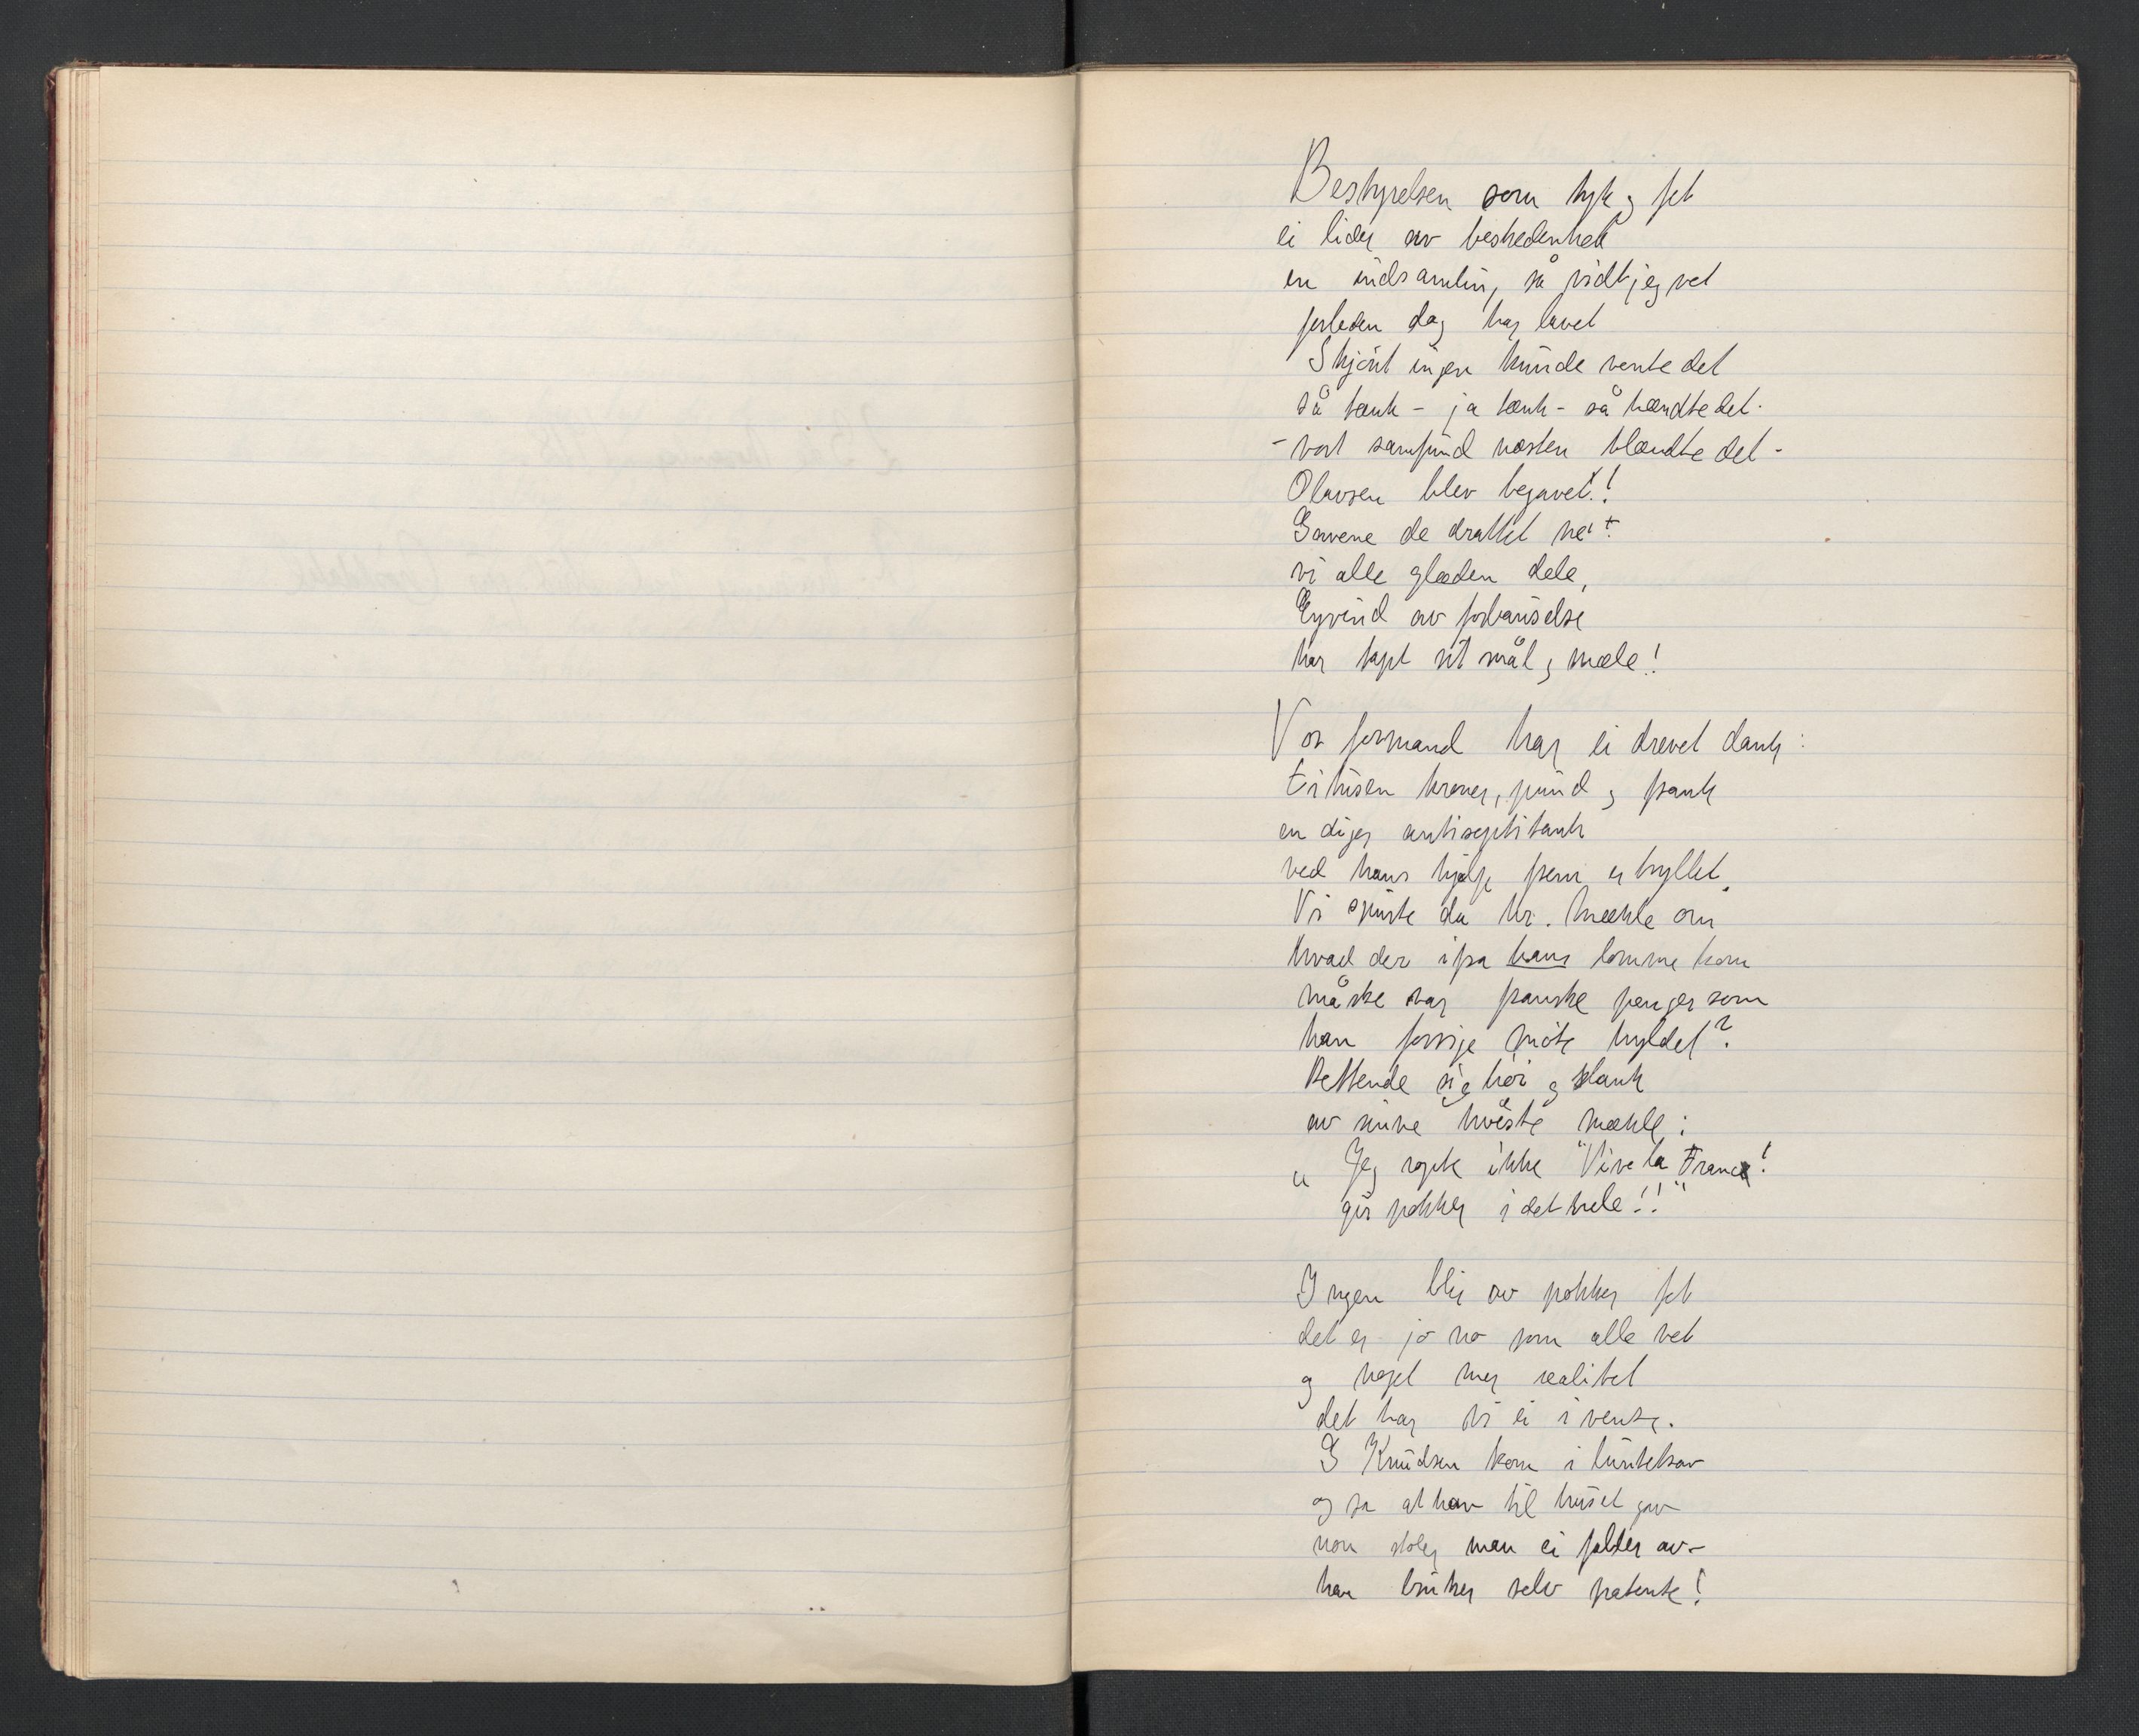 Bestyrelsen som tyk og fet
ei lider av beskedenhet
en indsamling så vidt jeg vet
forleden dag har lavet
Skjönt ingen kunde vente det
så tænk - ja tænk - så hændte det.
- vort samfund næsten blændte det -
Olavsen blev begavet!!
Gavene de drattet ne'!
vi alle glæden dele,
Eyvind av forbauselse
har tapt sit mål og mæle!
Vor formand har ei drevet dank:
Ti tusen kroner, pund og frank
en diger antiseptitank
ved hans hjælp frem er tryllet.
Vi spurte da hr. Mæhle om
hvad der ifra hans lomme kom
måske var franske penger som
han forrige möte hyldet?
Rettende sig höi og slank
av sinne hvæste Mæhle:
„Jeg ropte ikke "Vive la France!
gir pokker i det hele!!"
Ingen blir av pokker fet
det er jo no som alle vet
og noget mer realitet
det har vi ei i vente.
G Knudsen kom i luntetrav
og sa at han til huset gav
non stoler man ei falder av -
han bruker selv patente!